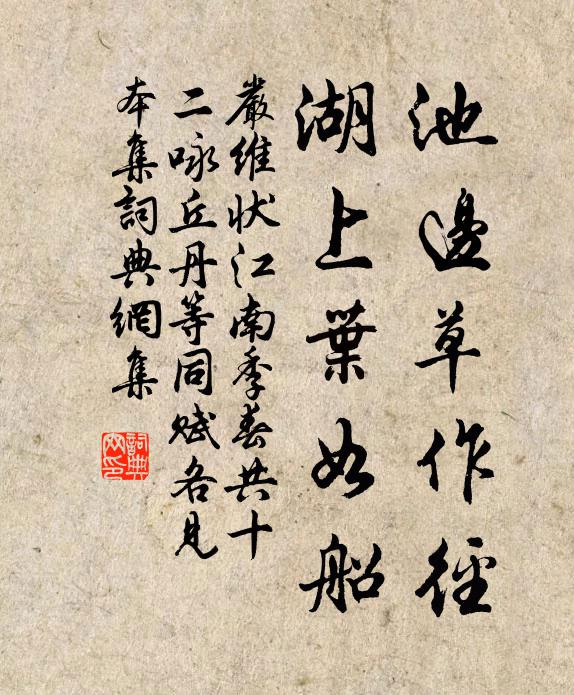 池邊草作徑
湖上葉如船
嚴維狀江南季春共十
二咏丘丹等同賦各見
本集詞典網集
詞典網印